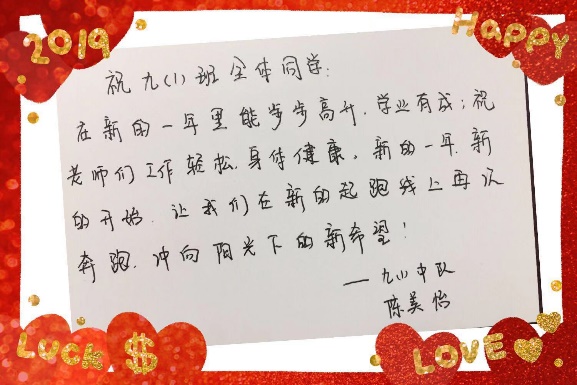 2019
Happy
祝九(1)班全体同学:
在新的一年里能步步高升,学业有成;祝
老师们工作轻松,身体健康,新的一年,新
的开始,让我们在新的起跑线上再次
奔跑,冲向阳光下的新希望!
—九(1)中队
陈美怡
LUCK $
LOVE